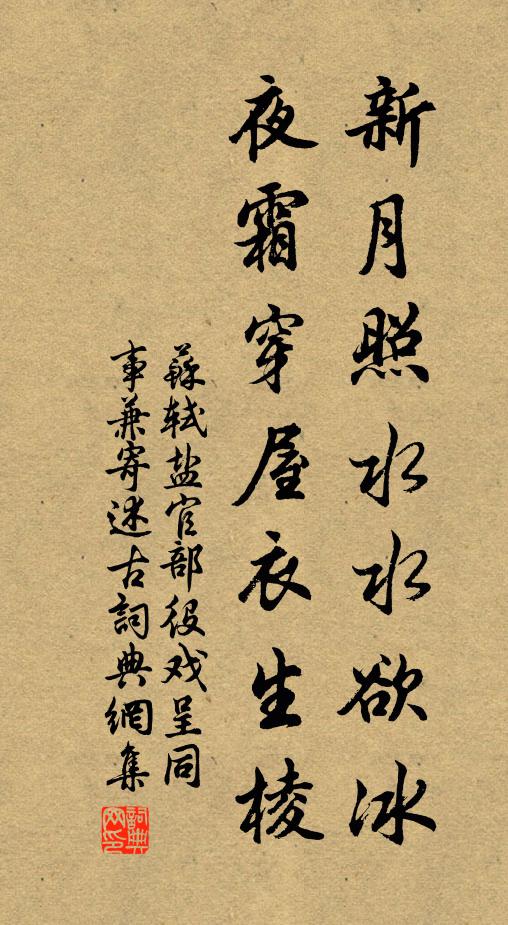 新月照水水欲冰
夜霜穿屋衣生棱
蘇轼盐官部役戏呈同
事兼寄述古詞典網集
詞典网印